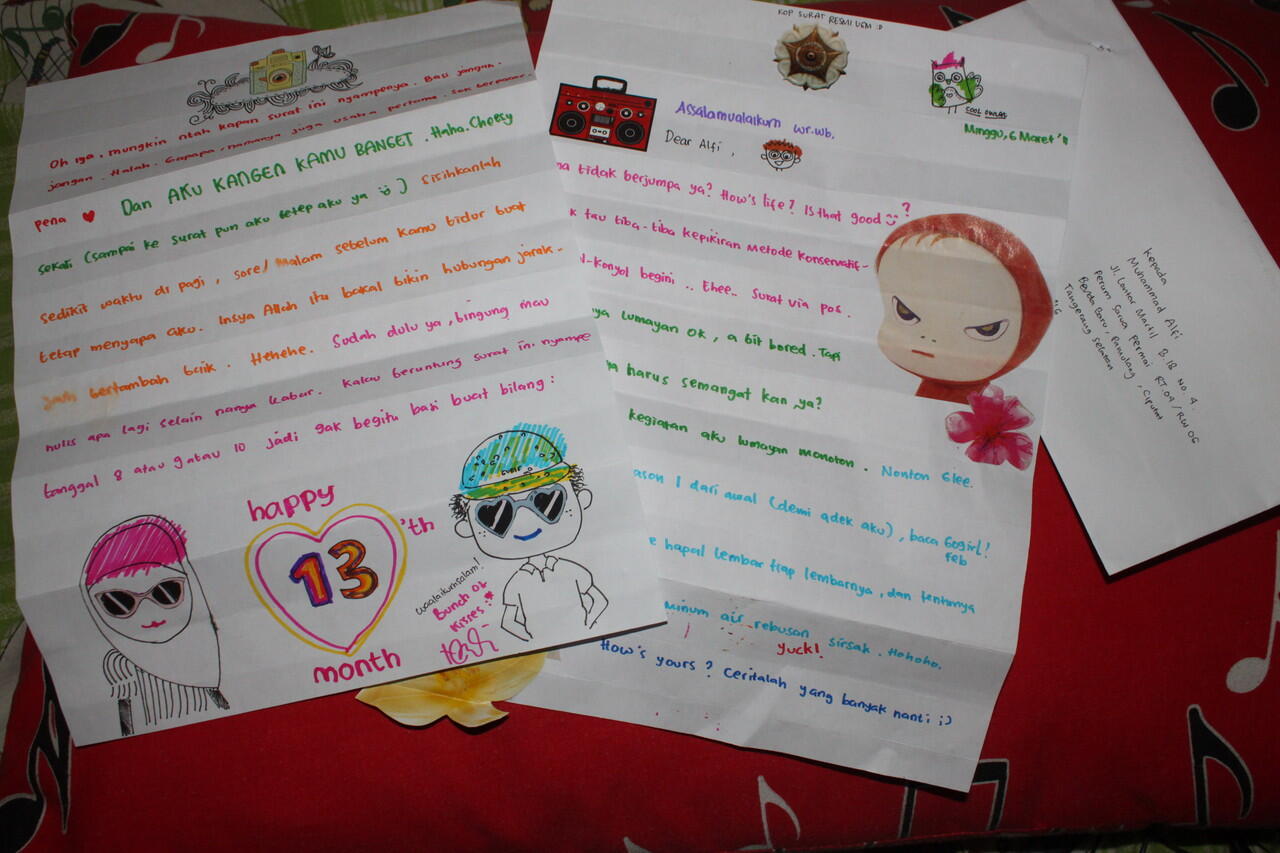 KOP SURAT RESMI UGM :D
COOL OWLAT
Minggu, 6 Maret '11
Assalamualaikum wr.wb.
Dear Alfi,
tidak berjumpa ya? How's life? Is that good ?
tau tiba-tiba kepikiran metode konservatif-
konyol begini .. Ehee.. Surat via pos.
lumayan OK, a bit bored. Tapi
harus semangat kan ya?
kegiatan aku lumayan monoton. Nonton Glee.
1 dari awal (demi adek aku), baca Gogirl!
feb
hapal lembar tiap lembarnya, dan tentunya
minum air rebusan sirsak. Hohoho.
yuck!
How's yours? Ceritalah yang banyak nanti ;)
Oh iya, mungkin ntah kapan surat ini nyampenya. Basi jangan.
jangan. Halah. Gapapa, namanya juga usaha pertama. Sok berpacar
pena ♥ Dan AKU KANGEN KAMU BANGET. Haha. Cheesy
sekali (sampai ke surat pun aku tetep aku ya :) Sisihkanlah
sedikit waktu di pagi, sore/malam sebelum kamu tidur buat
tetap menyapa aku. Insya Allah itu bakal bikin hubungan jarak-
jauh bertambah baik. Hehehe. Sudah dulu ya, bingung mau
nulis apa lagi selain nanya kabar. Kalau beruntung surat ini nyampe
tanggal 8 atau 9 atau 10 jadi gak begitu basi buat bilang:
happy
13
'th
month
waalaikumsalam!
Bunch of
kisses :*
Kepada
Muhammad Alfi
Jl. Lontar Martil B.18 No. 4.
Perum Sarua Permai RT.04 / RW 06
Benda Baru, Pamulang, Ciputat
Tangerang Selatan